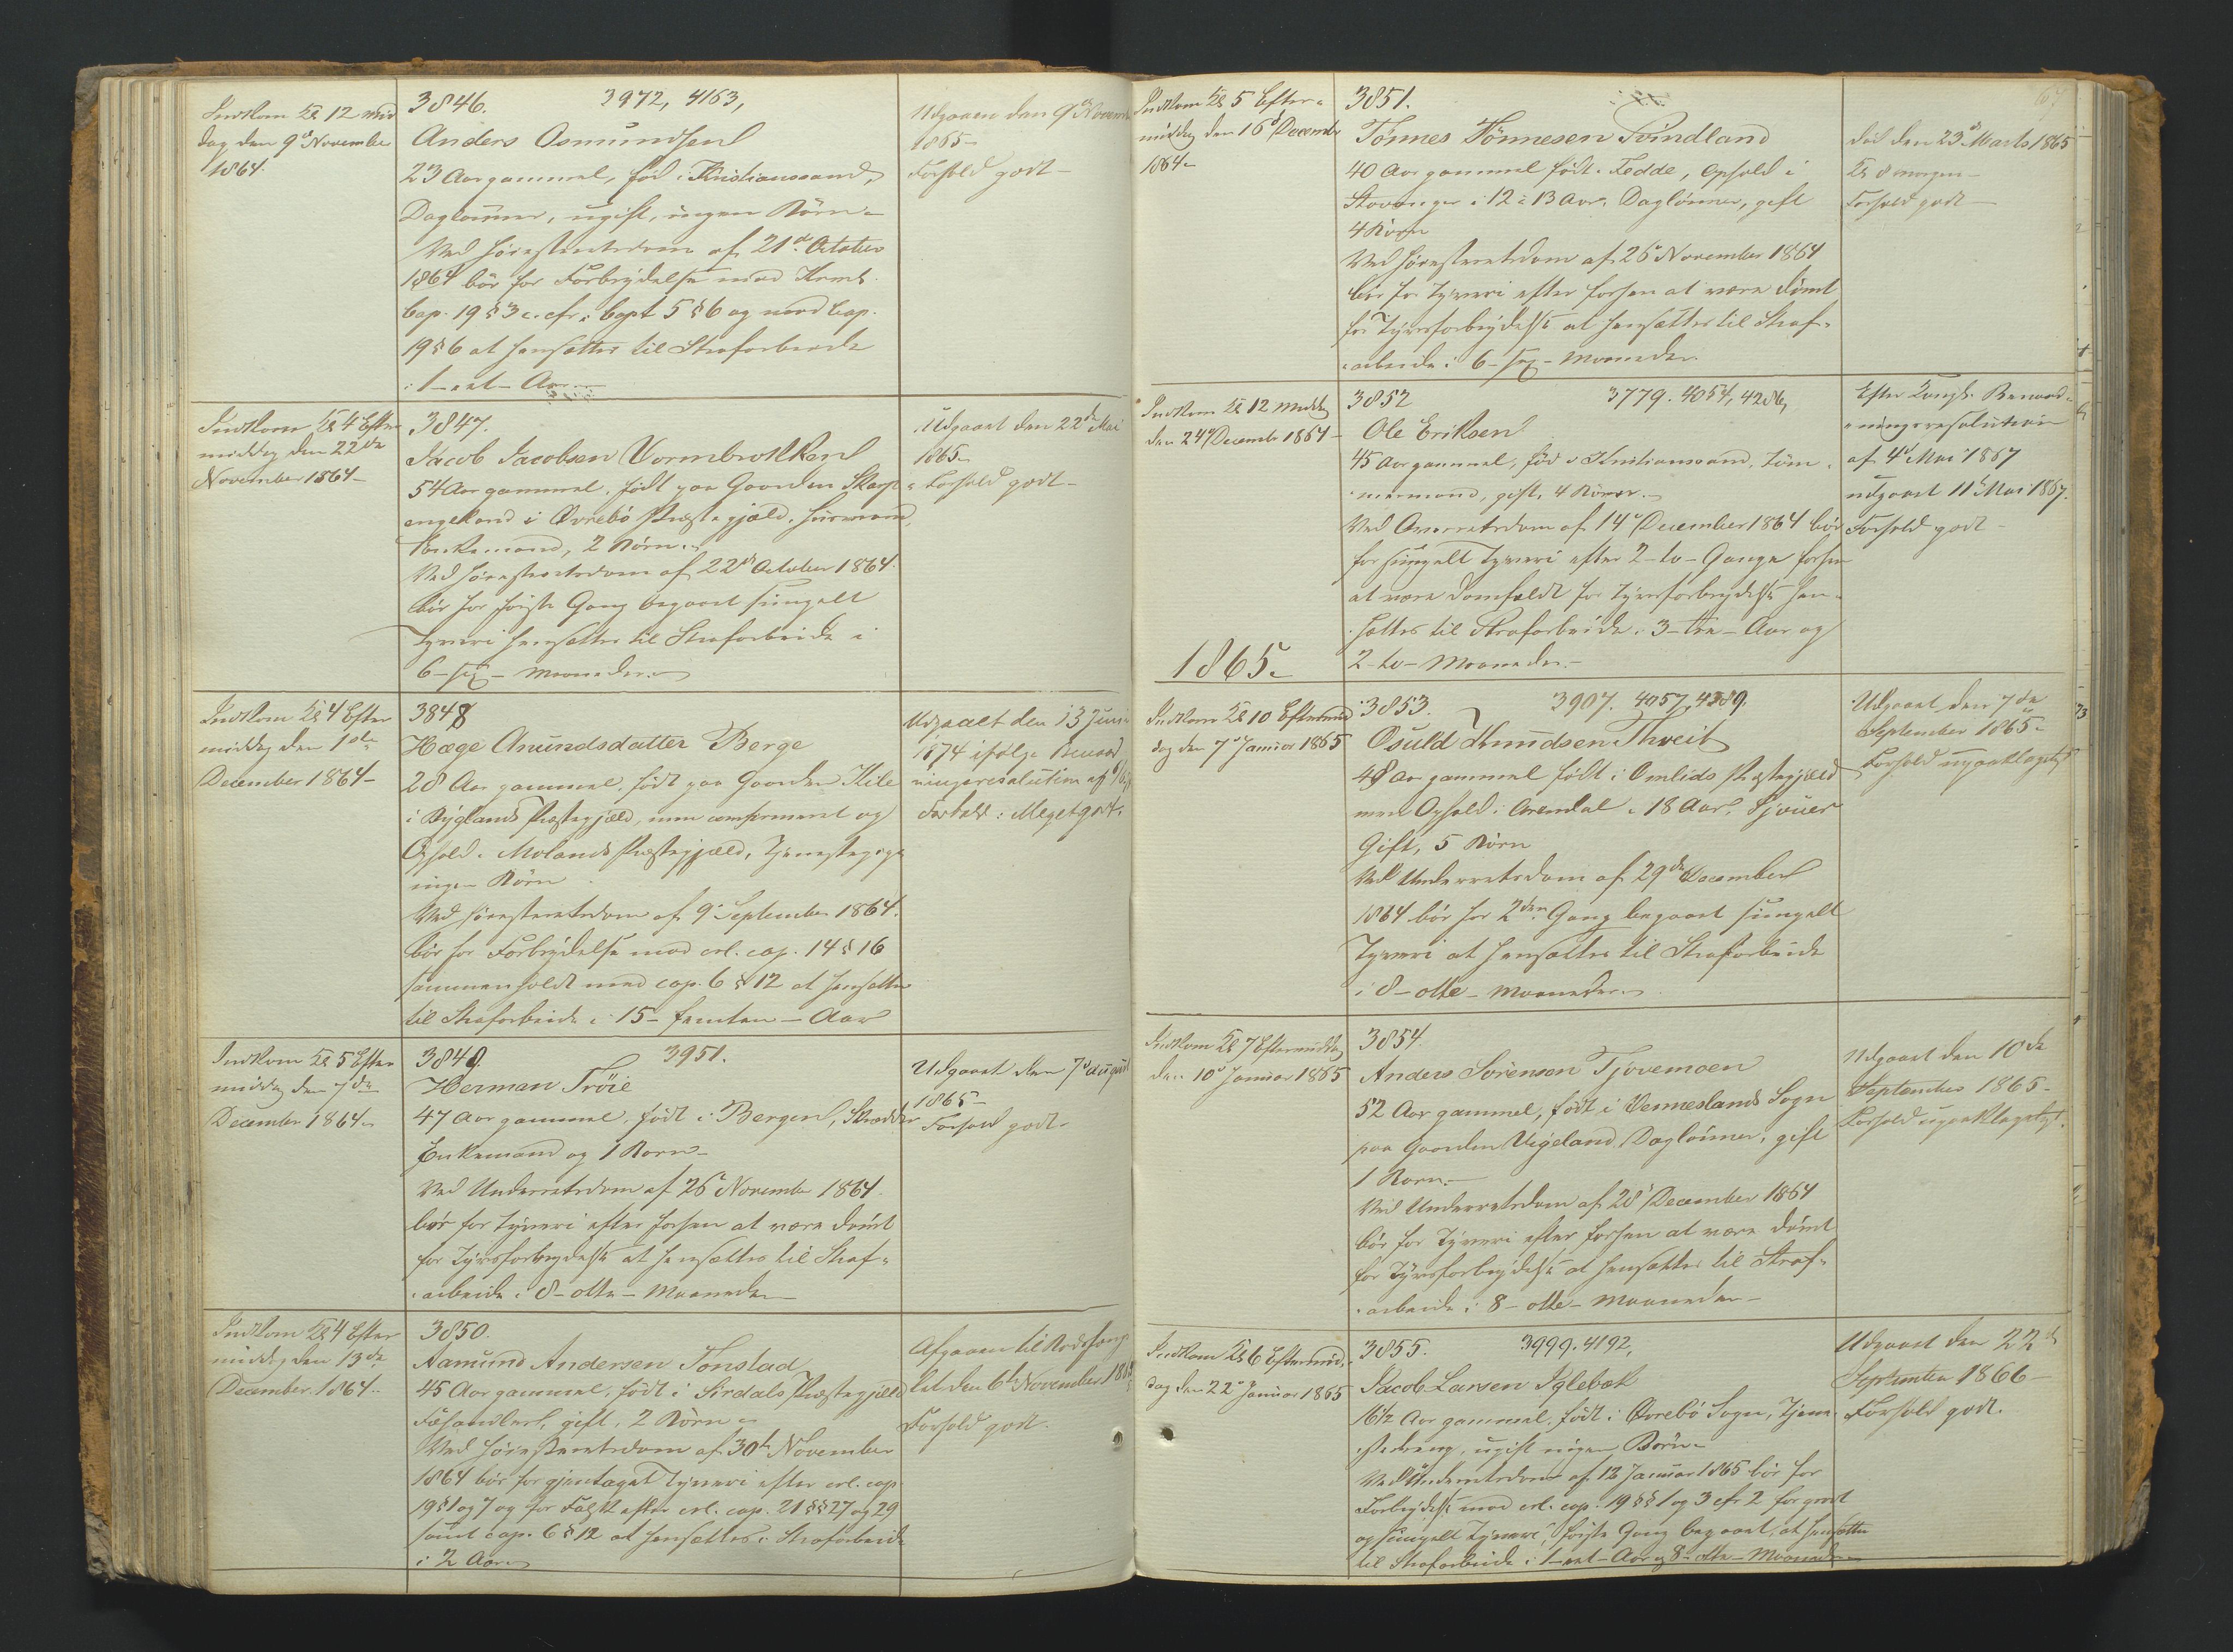 Indkom Kl 12 mid
dag den 9de November
1864.
3846. 3972, 4163,
Anders Osmundsen
23 Aar gammel, fød i Kristianssand,
Daglønner, ugift, ingen Börn
Ved Høiesteretsdom af 21de October
1864 bör for Forbrydelse mod Krml.
Cap. 19 § 3 c. cfr. Capt 5 § 6 og mod Cap.
19 § 6 at hensættes til Strafarbeide
i 1 - eet - Aar
Udgaaen den 9de Novemb
1865 -
Forhold godt -
Indkom Kl 4 Efter
middag den 22de
November 1864 -
3847.
Jacob Jacobsen Vormbrokken
54 Aar gammel, født paa Gaarden Skarp
engeland i Øvrebö Præstegjæld, Huusmand,
Enkemand, 2 Börn
Ved Høiesteretsdom af 22de October 1864.
bör for første Gang begaaet simpelt
Tyveri hensættes til Strafarbeide i
6 - sex - Maaneder.
Udgaaet den 22de Mai
1865 -
Forhold godt -
Indkom Kl 4 Efter
middag den 1ste
December 1864 -
3848
Hæge Anundsdatter Berge
28 Aar gammel, født paa Gaarden Kile
i Byglands Præstegjæld, men confirmeret og
Ophold i Molands Præstegjæld, Tjenestepige
ingen Börn
Ved Høiesteretsdom af 9de September 1864.
bör for Forbrydelse mod crl. cap. 14 § 16
sammenholdt med cap. 6 § 12 at hensættes
til Strafarbeide i 15 - femten - Aar
Udgaaet den 13 Juni
1874 ifølge Benaad
ningsresolution af
Forhold: Meget godt.
Indkom Kl 5 Efter
middag den 7de
December 1864
3849. 3951.
Herman Tröie
47 Aar gammel, født i Bergen, Skrædder
Enkemand og 1 Barn -
Ved Underretsdom af 26de November 1864.
bör for Tyveri efter forhen at være dömt
for Tyvsforbrydelse at hensættes til Straf-
arbeide i 8 - otte - Maaneder
Udgaaet den 7de August
1865 -
Forhold godt
Indkom Kl 4 Efter
middag den 13de
December 1864.
3850.
Aamund Andersen Tonstad
45 Aar gammel, født i Sirdals Præstegjæld
Fæhandler, gift, 2 Börn
Ved Høiesteretsdom af 30te November
1864 bör for gjentaget Tyveri efter crl. cap
19 § 1 og 7 og for Falsk efter crl. cap. 21 §§ 27 og 29
samt cap. 6 § 12 at hensættes i Strafarbeide
i 2 Aar
Afgaaen til Bodsfæng
let den 6te November 186
Forhold godt.
Indkom Kl 5 Efter-
middag den 16de Decembr
1864
3851.
Tönnes Tönnesen Svindland
40 Aar gammel født i Fedde, Ophold i
Stavanger i 12 à 13 Aar, Daglönner, gift
4 Börn
Ved Høiesteretsdom af 26de November 1864
bör for Tyveri efter forhen at være dömt
for Tyvsforbrydelse at hensættes til Straf-
arbeide i 6 - sex - Maaneder
67
Död den 23de Marts 1865
Kl 8 morgen -
Forhold godt -
Indkom Kl 12 Middag
den 24de Decembr 1864 -
3852 3779. 4054, 4286,
Ole Eriksen
45 Aar gammel, fød i Kristianssand, Töm-
mermand, gift, 4 Börn.
Ved Overretsdom af 14de December 1864 bör
for simpelt Tyveri efter 2 - to - Gange forhen
at være domfældt for Tyvsforbrydelse hen-
sættes til Strafarbeide i 3 - tre - Aar og
2 - to - Maaneder. -
Efter Kongl. Benaad-
ningsresolution
af 4de Mai 1867
udgaaet 11te Mai 1867.
Forhold godt -
1865.
Indkom Kl 10 Eftermid
dag den 7de Januar 1865
3853. 3907. 4057, 4389.
Osuld Knudsen Thveit
48 Aar gammel født i Omlids Præstegjæld
men Ophold i Arendal i 18 Aar. Sjouer
Gift, 5 Börn
Ved Underretsdom af 29de December
1864 bör for 2den Gang begaaet simpelt
Tyveri at hensættes til Strafarbeide
i 8 - otte - Maaneder
Udgaaet den 7de
September 1865 -
Forhold upaaklageligt
Indkom Kl 7 Eftermiddag
den 10de Januar 1865
3854
Anders Sörensen Tjovemoen
52 Aar gammel, født i Venneslands Sogn
paa Gaarden Vigeland, Daglönner, gift
1 Barn. -
Ved Underretsdom af 28de December 1864
bör for Tyveri efter forhen at være dömt
for Tyvsforbrydelse at hensættes til Straf-
arbeide i 8 - otte - Maaneder -
Udgaaet den 10de
September 1865 -
Forhold upaaklageligt.
Indkom Kl 6 Eftermid-
dag den 22de Januar 1865
3855. 3999. 4192,
Jacob Larsen Iglebæk
16 1/2 Aar gammel, født i Øvrebö Sogn, Tjene-
stedreng, ugift ingen Börn
Ved Underretsdom af 12 Januar 1865 bör for
Forbrydelse mod crl. cap. 19 §§ 1 og 3 cfr 2 for grovt
og simpelt Tyveri, første Gang begaaet, at hensættes
til Strafarbeide i 1 - eet - Aar og 8 - otte - Maaneder
Udgaaet den 22de
September 1866 -
Forhold godt.